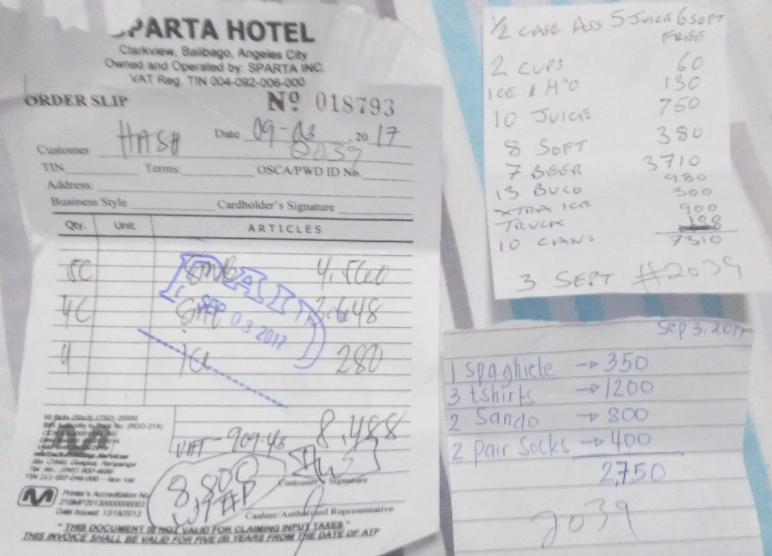 SPARTA HOTEL
Clarkview, Balibago, Angeles City
Owned and Operated by: SPARTA INC.
VAT Reg. TIN 004-092-006-000
ORDER SLIP Nº 018793
Date 09-03, 2017
Customer HASH 2039
TIN Terms: OSCA/PWD ID No.
Address:
Business Style Cardholder's Signature
Qty. Unit ARTICLES
5C SMB 4,560
4C SML 3,648
4 ICE 280
PAID
SEP 03 2017
8,488
VAT - 909.43
Customer's Signature
Cashier/Authorized Representative
Printer's Accreditation No
Date Issued: 12/18/2013
"THIS DOCUMENT IS NOT VALID FOR CLAIMING INPUT TAXES"
THIS INVOICE SHALL BE VALID FOR FIVE (5) YEARS FROM THE DATE OF ATP
1/2 CASE ASS 5 JUICE 6 SOFT
FREE
2 CUPS 60
ICE & H2O 130
10 JUICE 750
8 SOFT 380
7 BEER 3710
13 BUCO 980
XTRA ICE 300
TRUCK 900
10 CANS 100
7310
3 SEPT #2039
Sep 3, 2017
1 spaghiete → 350
3 tshirts → 1200
2 Sando → 800
2 pair Socks → 400
2,750
2039